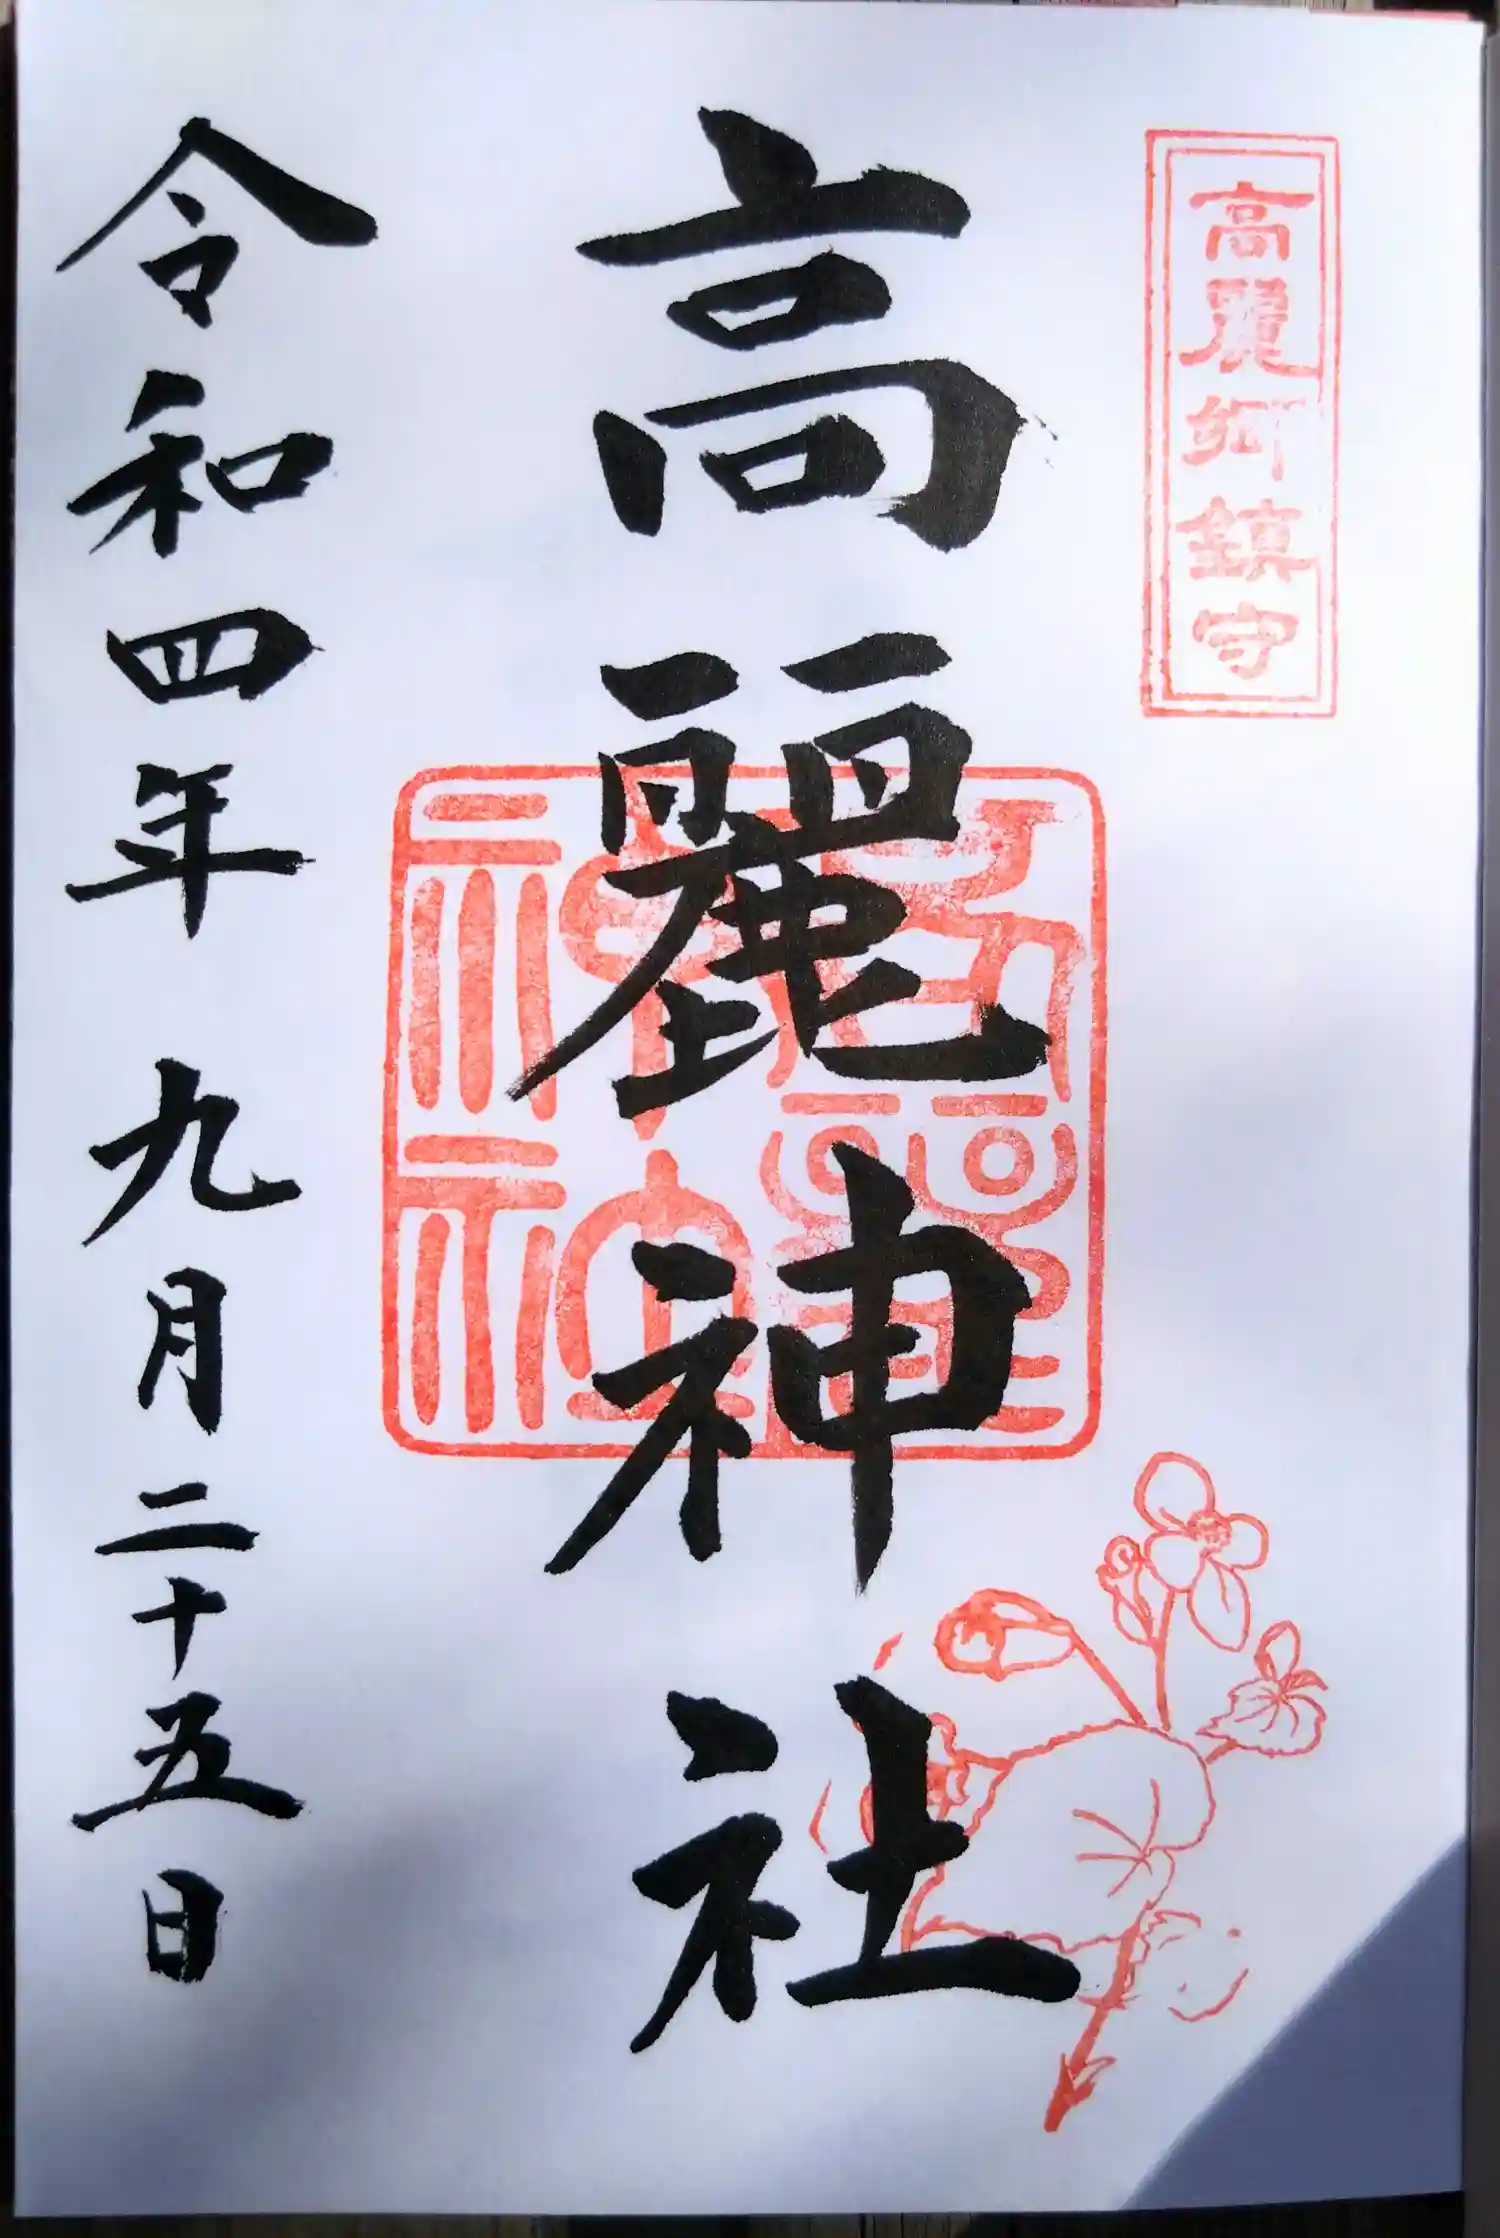 高麗郷鎮守
高麗神社
高麗神社
令和四年九月二十五日